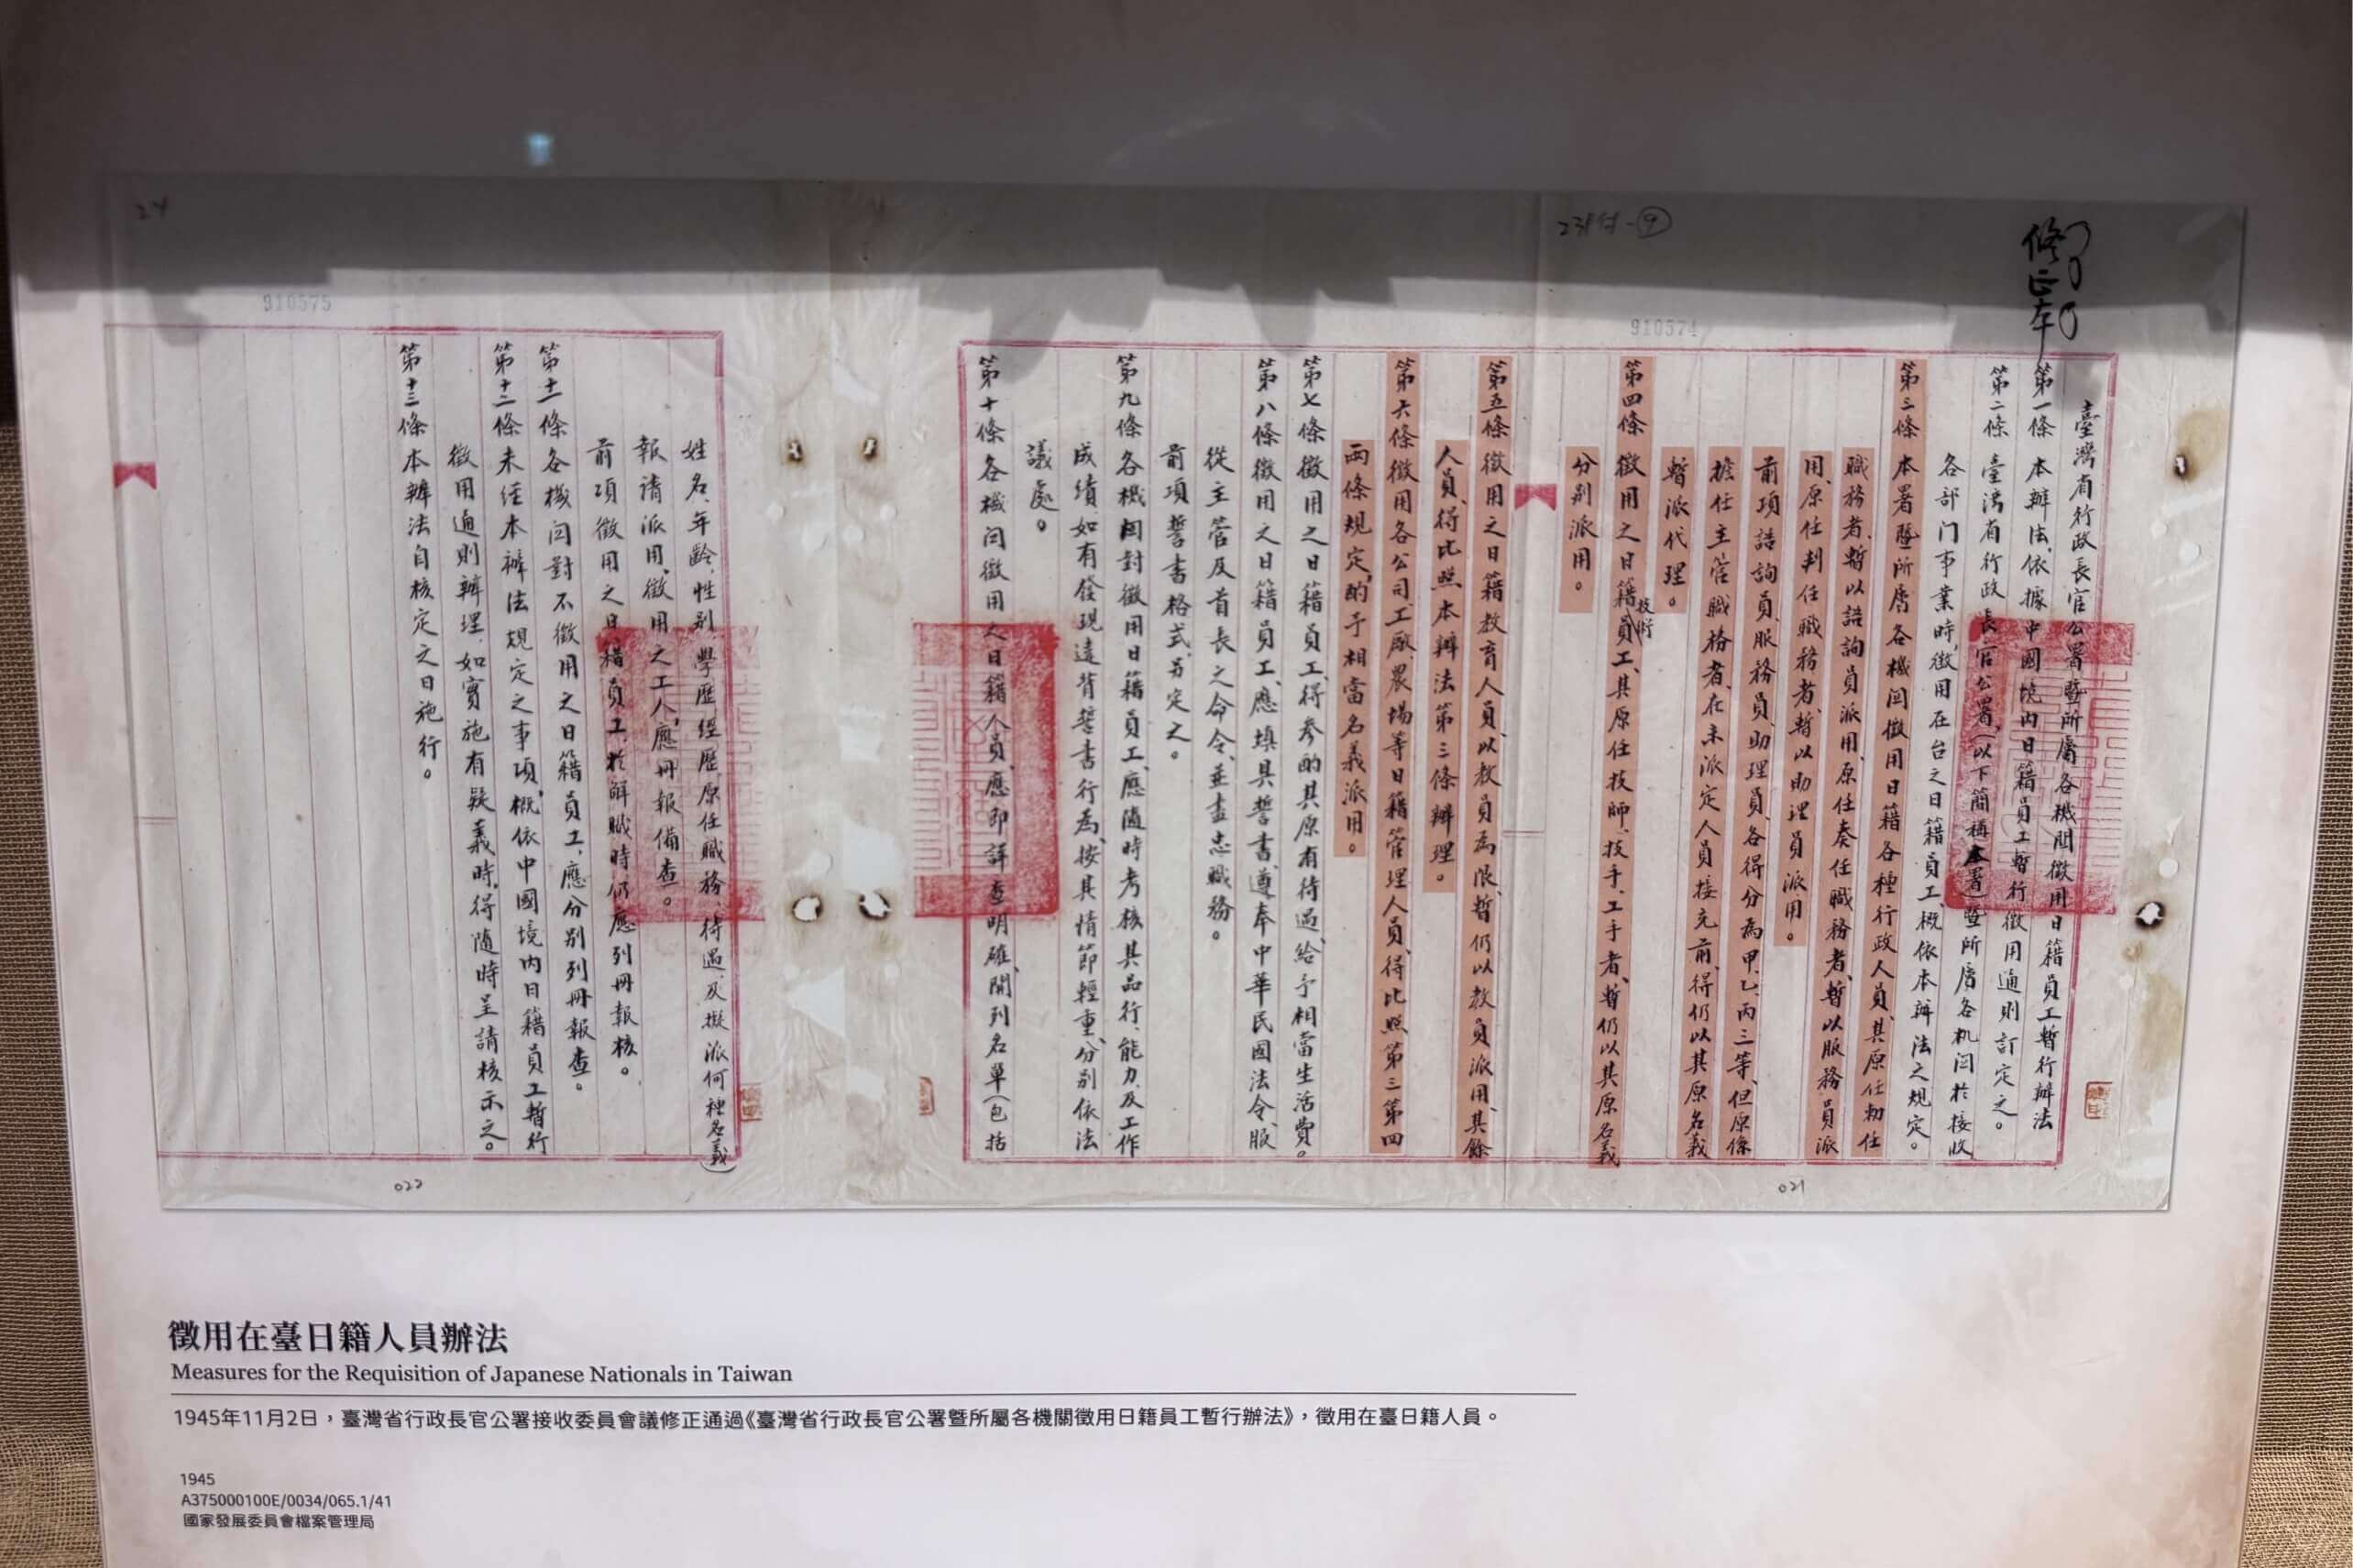 24
23付-⑨
910575
910574
修正本
臺灣省行政長官公署暨所屬各機關徵用日籍員工暫行辦法
第一條 本辦法依據中國境內日籍員工暫行徵用通則訂定之。
第二條 臺湾省行政長官公署(以下簡稱本署)暨所屬各机関於接收
各部门事業時徵用在台之日籍員工、概依本辦法之規定。
第三條 本署暨所屬各機関徵用日籍各種行政人員、其原任勅任
職務者、暫以諮詢員派用、原任奏任職務者、暫以服務員派
用、原任判任職務者、暫以助理員派用。
前項諮詢員、服務員、助理員、各得分為甲、乙、丙三等、但原係
擔任主管職務者、在未派定人員接充前、得仍以其原名義
暫派代理。
第四條 徵用之日籍技術員工、其原任技師、技手、工手者、暫仍以其原名義
分别派用。
第五條 徵用之日籍教育人員、以教員為限、暫仍以教員派用、其餘
人員、得比照本辦法第三條辦理。
第六條 徵用各公司、工廠、農場等日籍管理人員、得比照第三第四
兩條規定、酌予相當名義派用。
第七條 徵用之日籍員工、得參酌其原有待遇、給予相當生活費。
第八條 徵用之日籍員工、應填具誓書、遵奉中華民國法令、服
從主管及首長之命令、並盡忠職務。
前項誓書格式、另定之。
第九條 各機関對徵用日籍員工、應隨時考核其品行、能力、及工作
成績、如有發現違背誓書行為、按其情節輕重、分别依法
議處。
第十條 各機関徵用之日籍人員、應即詳查明確、開列名單(包括
姓名、年齡、性别、學歷、經歷、原任職務、待遇、及擬派何種名義)
報請派用、徵用之工人、應冊報備查。
前項徵用之日籍員工、於解職時、仍應列冊報核。
第十一條 各機関對不徵用之日籍員工、應分别列冊報查。
第十二條 未經本辦法規定之事項、概依中國境內日籍員工暫行
徵用通則辦理、如實施有疑義時、得隨時呈請核示之。
第十三條 本辦法自核定之日施行。
022
021
徵用在臺日籍人員辦法
Measures for the Requisition of Japanese Nationals in Taiwan
1945年11月2日，臺灣省行政長官公署接收委員會議修正通過《臺灣省行政長官公署暨所屬各機關徵用日籍員工暫行辦法》，徵用在臺日籍人員。
1945
A375000100E/0034/065.1/41
國家發展委員會檔案管理局